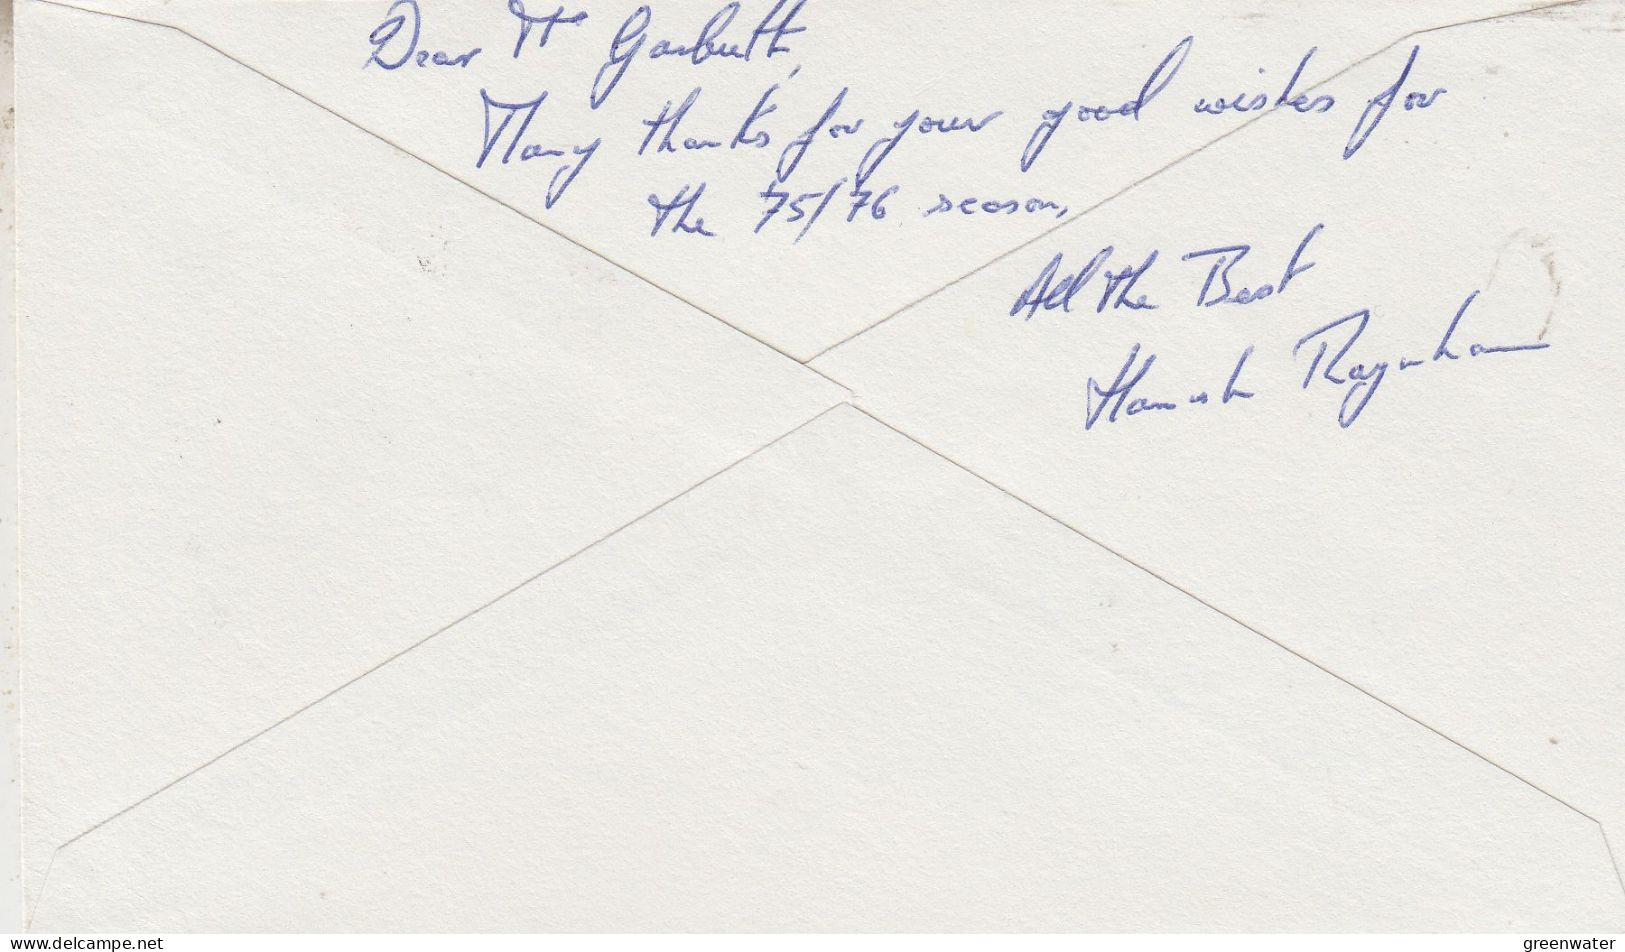 Dear Mr Garbutt,
Many thanks for your good wishes for
the 75/76 season,
All the Best
Hamish Raynham
www.delcampe.net
greenwater